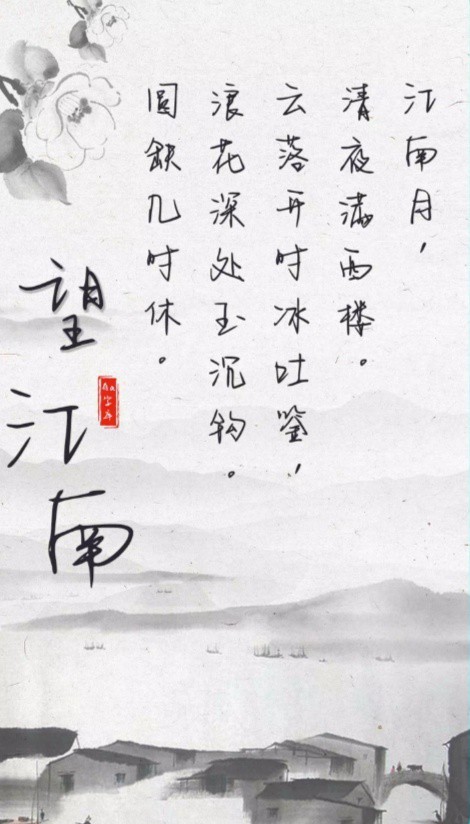 江南月，
清夜满西楼。
云落开时冰吐鉴，
浪花深处玉沉钩。
圆缺几时休。
望江南
Aa字库